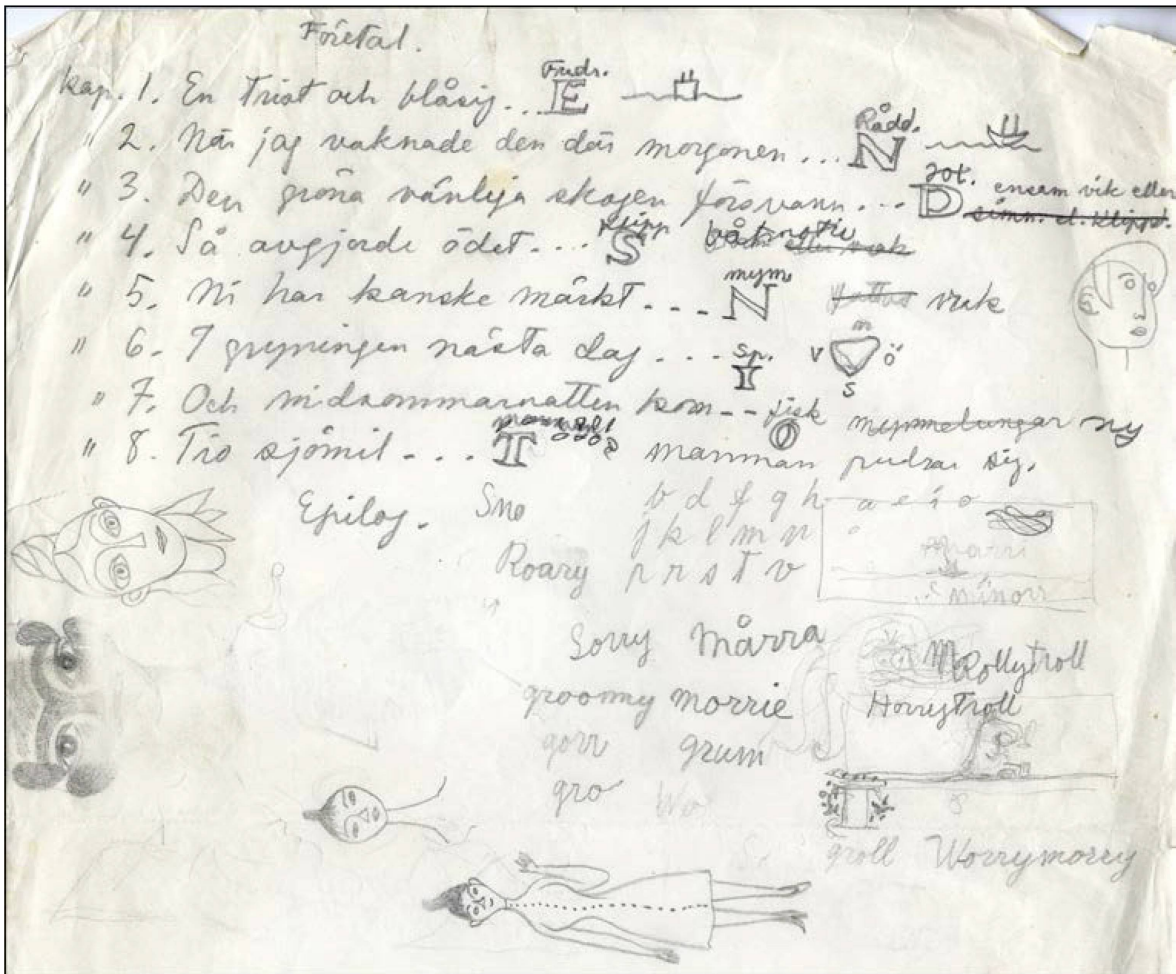 Företal.
kap. 1. En trist och blåsig... Fridr. E
" 2. När jag vaknade den där morgonen... Rådd. N
" 3. Den gröna vänliga skogen försvann... Jot. D ensam vik eller
simn. el. klipp.
" 4. Så avgjorde ödet.... klipp S eller vrak
" 5. Ni har kanske märkt.... mym N vrak
" 6. I gryningen nästa dag.... sp. I N V Ö S
" 7. Och midsommarnatten kom-- fisk O mymmelungar ny
" 8. Tio sjömil.... T mamman pudrar sig.
Epilog. Sno b d f g h a e i o
j k l m n
Roary p r s t v
Sorry Mårra
MRollytroll
groomy morrie Horrytroll
gorr grum
gro Wo
groll Worrymorry